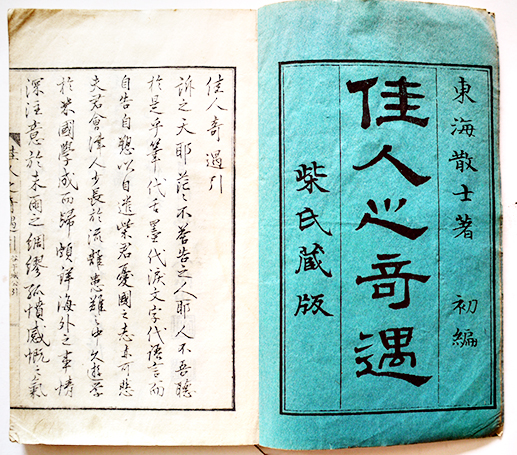 東海散士著　初編
佳人之奇遇
柴氏藏版
佳人奇遇引
訴之天耶茫々不荅告之人耶人不吾聽
於是乎筆代舌墨代淚文字代語言而
自告自聽以自遣柴君憂國之志亦可悲
夫君會津人少長於流離患難之中久遊學
於米國學成而歸頗詳海外之事情
深注意於未雨之綢繆孤憤感慨之氣